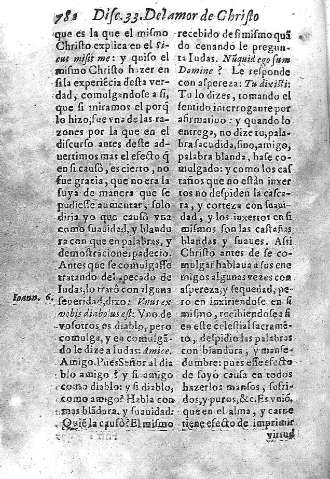 782 Disc. 33. Del amor de Christo
que es la que el mismo
Christo explica en el sicut
misit me: y quiso el
mismo Christo hazer en
si la experiẽcia desta verdad,
comulgandose a si,
que si miramos el porq̃
lo hizo, fue vna de las razones
por la que en el
discurso antes deste advertimos
mas el efecto q̃
en si causò, es cierto, no
fue gracia, que no era la
suya de manera que se
pudiesse aumentar, solo
diria yo que causò vna
como suauidad, y blandura
con que en palabras, y
demostraciones padecio.
Antes que se comulgasse
tratando del pecado de
Iudas, lo tratò con alguna
seueridad, dixo: Vnus ex
vobis diabolus est: Vno de
vosotros es diablo, pero
comulga, y en comulgãdo
le dize a Iudas: Amice.
Amigo. Pues Señor al diablo
amigo? y si amigo
como diablo: y si diablo,
como amigo? Habla con
mas blãdura, y suauidad.
Quiẽ la causò? El mismo
Ioann. 6.
recebido de si mismo quãdo
cenando le pregunta
Iudas. Nũquid ego sum
Domine? Le responde
con aspereza: Tu dixisti:
Tu lo dizes, tomando el
sentido interrogante por
afirmatiuo: y quando lo
entrega, no dize tu, palabra
sacudida, sino, amigo,
palabra blanda, hase comulgado:
y como los castaños
que no estàn inxertos
no despiden la cascara,
y corteza con suauidad,
y los inxertos en si
mismos son las castañas
blandas y suaues. Assi
Christo antes de se comulgar
hablaua a sus enemigos
algunas vezes con
aspereza, y sequedad, pero
en inxiriendose en si
mismo, recibiendose a si
en este celestial sacramẽto,
despidio las palabras
con blandura, y mansedumbre:
pues esse efecto
de suyo causa en todos
hazerlos mansos, sofridos,
y puros, &c. Es vniõ,
que en el alma, y carne
tiene efecto de imprimir
virtud